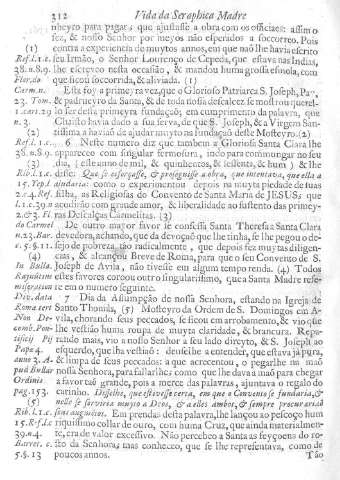 312 Vida da Seraphica Madre
nheyro para pagar, que ajustasse a obra com os officiaes: assim o
fez, & nosso Senhor por meyos não esperados a soccorreo. Pois
(1) contra a experiencia de muytos annos, em que não lhe havia escrito
Ref.l.1.c. seu Irmão, o Senhor Lourenço de Cepeda, que estava nas Indias,
38.n.8.9. lhe escreveo nesta occasião, & mandou huma grossa esmola, com
Flor.do que ficou soccorrida, & aliviada. (1)
Carm.n. Esta foy a primeyra vez, que o Glorioso Patriarca S. Joseph, Pa-
23. Tom. & padrueyro da Santa, & de toda nossa descalcez se mostrou querel-
1.cart.29 lo ser desta primeyra fundação, em cumprimento da palavra, que
n. 3. Christo havia dado a sua serva, de que S. Joseph, & a Virgem San-
(2) tissima a havião de ajudar muyto na fundação deste Mosteyro. (2)
Ref.l.1.c. 6 Neste numero diz que tambem a Gloriosa Santa Clara lhe
38.n.8.9. appareceo com singular fermosura, indo para commungar no seu
(3) dia, (este anno de mil, & quinhentos, & sessenta, & hum) & lhe
Rib.l.1.c. disse: Que se esforçasse, & prosegnisse a obra, que intentava, que ella a
15.Yep.l. ajudaria: como o experimentou depois na muyta piedade de suas
2.c.4.Ref. filhas, as Religiosas do Convento de Santa Maria de JESUS, que
l.1.c.39.n acudirão com grande amor, & liberalidade ao sustento das primey-
2.& 3. Fl. ras Descalças Carmelitas. (3)
do Carmel De outro mayor favor se confessa Santa Theresa a Santa Clara
n.23.Bar. devedora, achando, que da devoção que lhe tinha, se lhe pegou o de-
c.5.§.11. sejo de pobreza tão radicalmente, que depois fez muytas diligen-
(4) cias, & alcançou Breve de Roma, para que o seu Convento de S.
In Bulla. Joseph de Avila, não tivesse em algum tempo renda. (4) Todos
Rapientem estes favores coroou outro singularissimo, que a Santa Madre refe-
miseration re em o numero seguinte.
Div.data 7 Dia da Assumpção de nossa Senhora, estando na Igreja de
Roma tert Santo Thomás, (5) Mosteyro da Ordem de S. Domingos em A-
Non De vila, chorando seus peccados, se ficou em arrobamento, & vio que
comb.Pon- lhe vestião huma roupa de muyta claridade, & brancura. Repa-
tificij Pij rando mais, vio a nosso Senhor a seu lado direyto, & S. Joseph ao
Papæ 4. esquerdo, que lha vestião: deraõ-lhe a entender, que estava já pura,
anno 3. A- & limpa de seus peccados: a que acrecentou, o pegarlhe na maõ
pud Bullar nossa Senhora, para fallarlhe como que lhe dava a maõ para chegar
Ordinis a favor taõ grande, pois a merce das palavras, ajuntava o regalo do
pag.153. carinho. Disselhe, que estivesse certa, em que o Convento se fundaria, &
(5) nelle se serviria muyto a Deos, & a elles ambos, & sempre procuraria
Rib.l.1.c. seus augmentos. Em prendas desta palavra, lhe lançou ao pescoço hum
15.Ref.l.c riquissimo collar de ouro, com huma Cruz, que ainda materialmen-
39.n.4. te, era de valor excessivo. Não percebeo a Santa as feyçoens do ro-
Barret.c. sto da Senhora; mas conheceo, que se lhe representava, como de
5.§.13 poucos annos. Tão